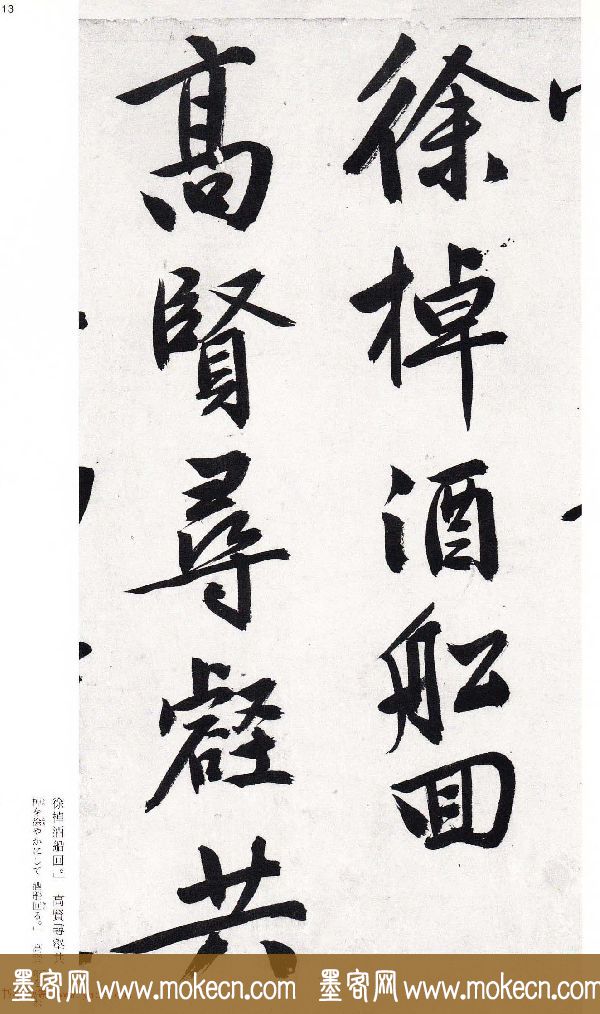 13
徐棹酒船回
高賢尋壑共
徐棹酒船回。」 高賢尋壑共
墨客网 www.mokecn.com 墨客网 www.mokecn.com